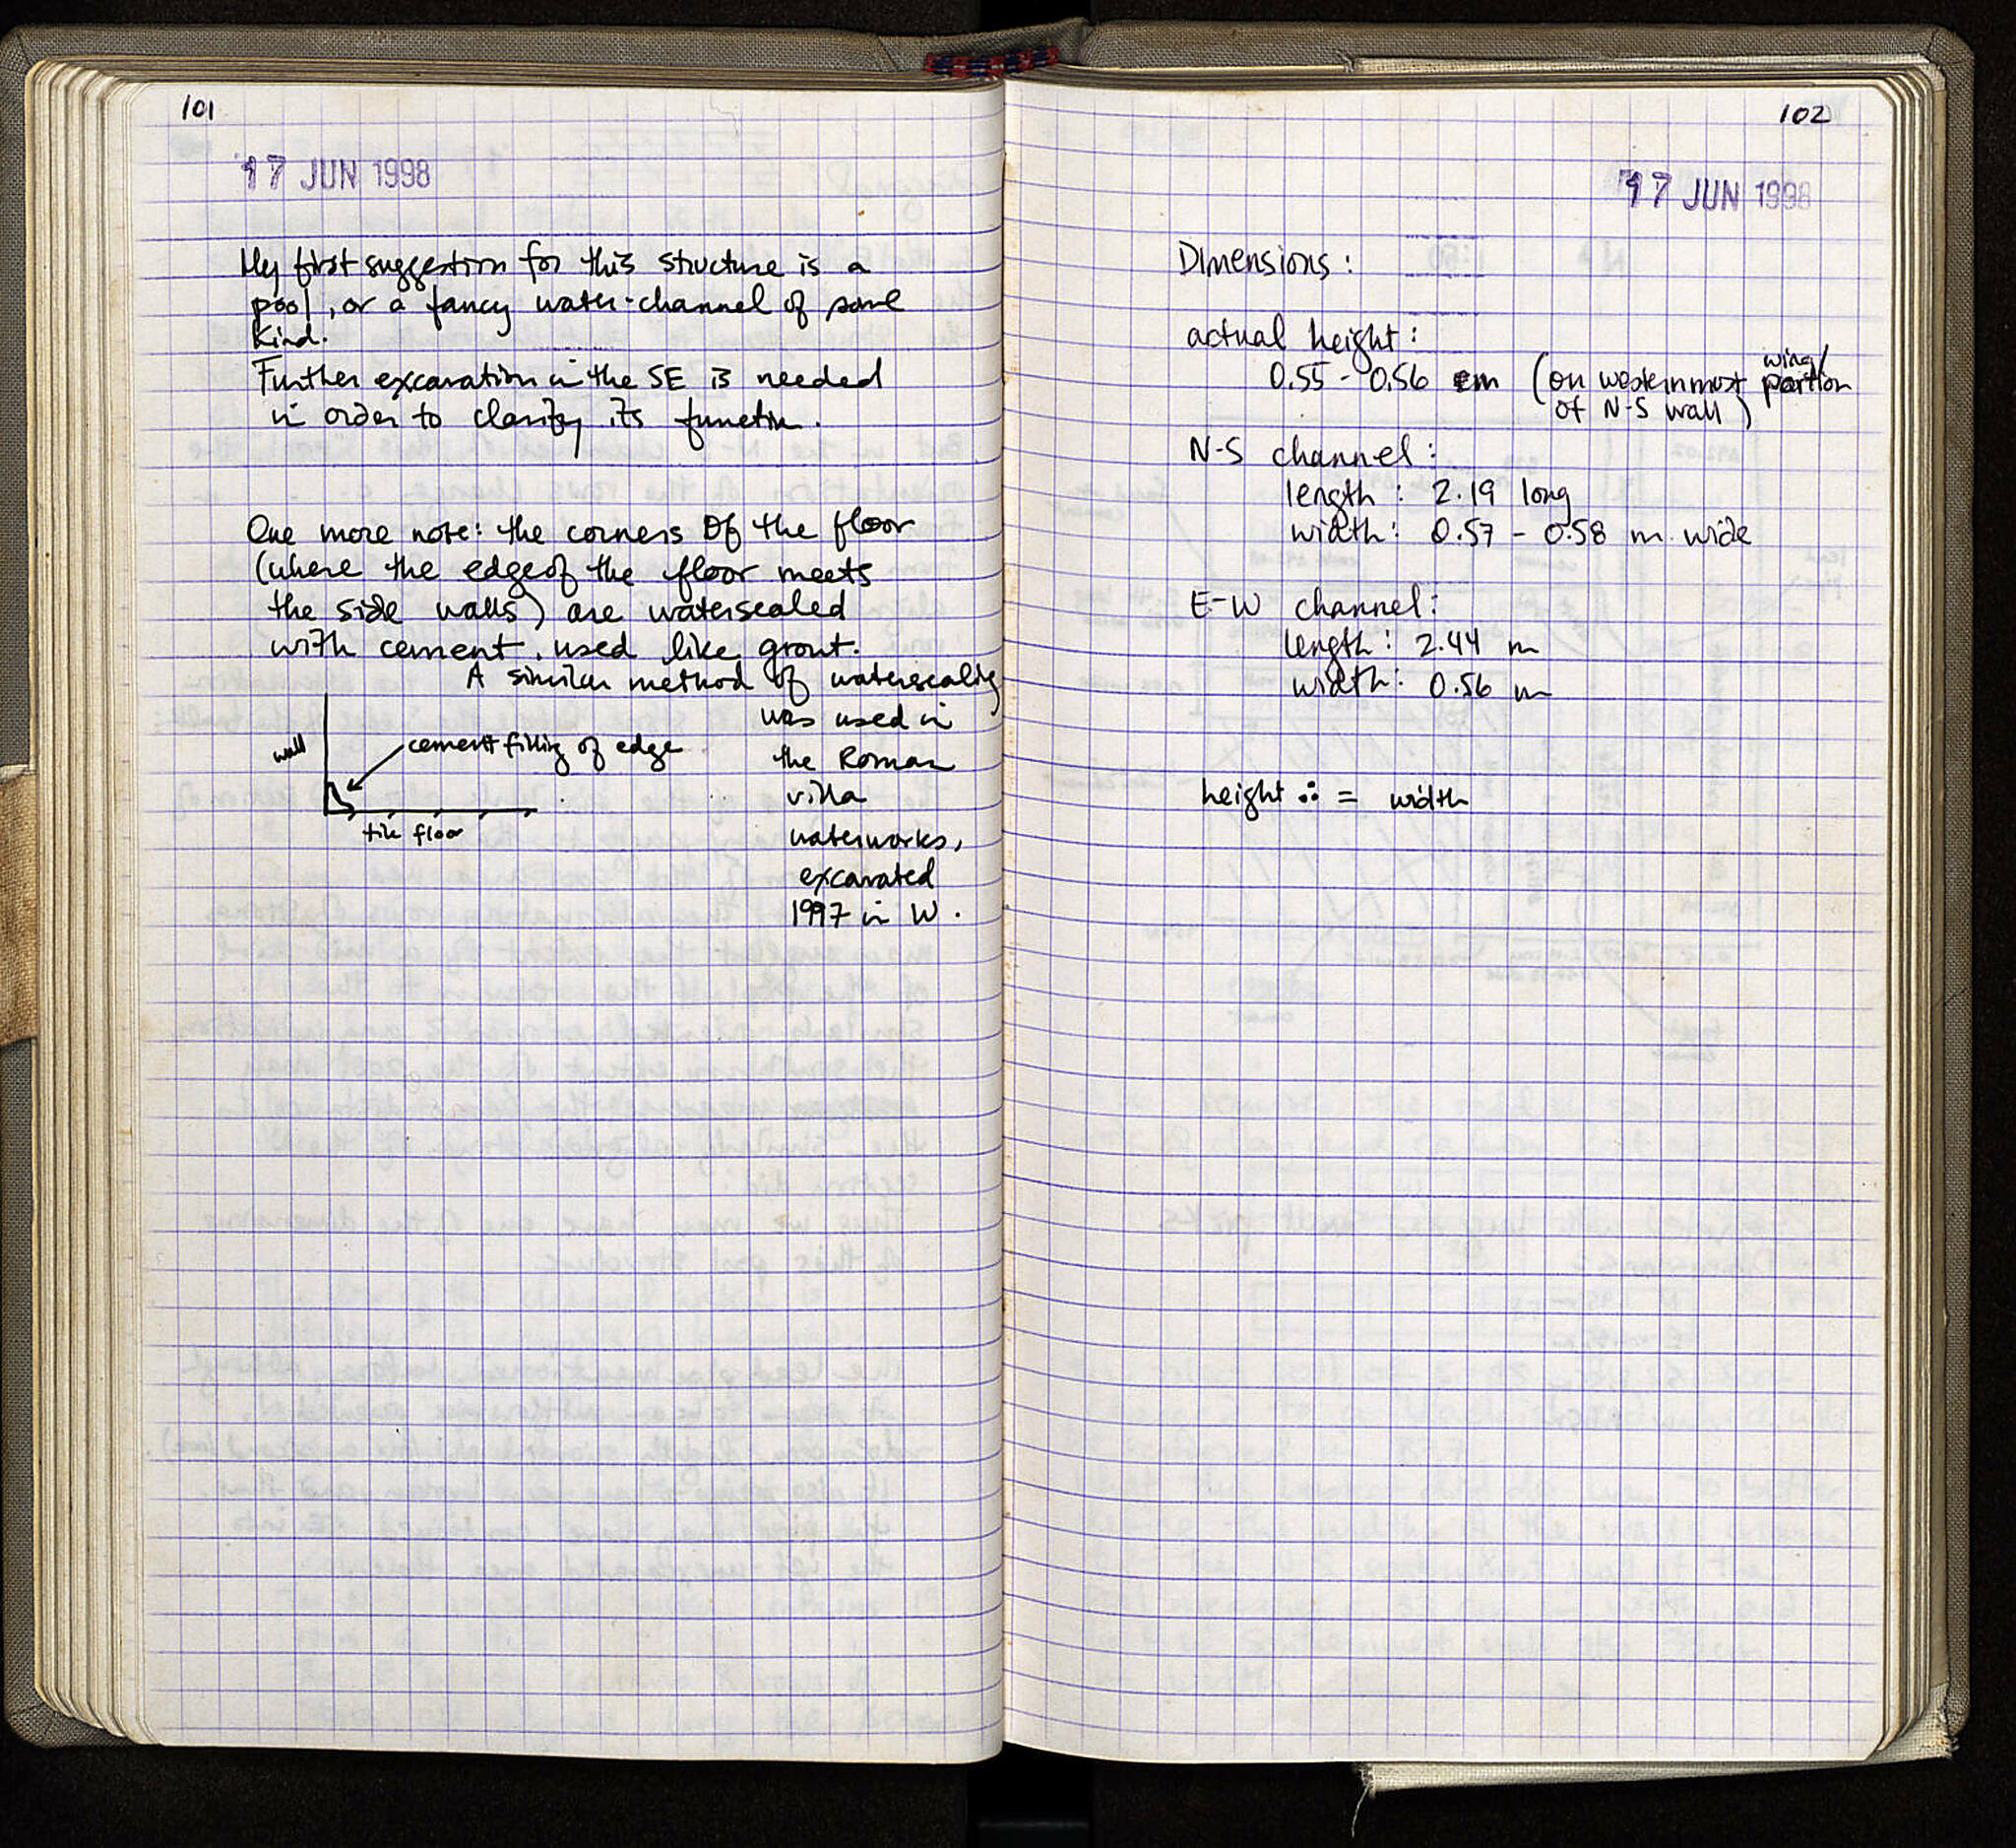 101
17 JUN 1998
My first suggestion for this structure is a
pool, or a fancy water-channel of some
kind.
Further excavation in the SE is needed
in order to clarify its function.
One more note: the corners of the floor
(where the edge of the floor meets
the side walls) are watersealed
with cement, used like grout.
A similar method of watersealing
was used in
the Roman
villa
waterworks,
excavated
1997 in W.
wall
cement filling of edge
tile floor
102
17 JUN 1998
Dimensions:
actual height:
0.55 - 0.56 m (on westernmost wing/portion
of N-S wall)
N-S channel:
length: 2.19 long
width: 0.57 - 0.58 m wide
E-W channel:
length: 2.44 m
width: 0.56 m
height ∴ = width